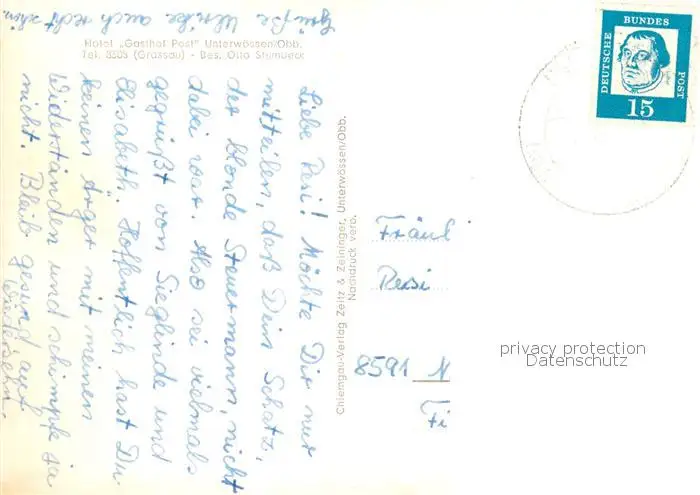 Hotel „Gasthof Post" Unterwössen/Obb.
Tel. 3203 (Grassau) - Bes. Otto Sternueck
Liebe Resi! Möchte Dir nur
mitteilen, daß Dein Schatz,
der blonde Steuermann, nicht
dabei war. Also sei vielmals
gegrüßt von Sieglinde und
Elisabeth. Hoffentlich hast Du
keinen Ärger mit meinen
Widerständen und schimpfe ja
nicht. Bleib gesund auf
Wiedersehn.
Grüße Ulrike auch recht schön.
Chiemgau-Verlag Zeitz & Zeininger, Unterwössen/Obb.
Nachdruck verb.
DEUTSCHE
BUNDES
POST
15
Fräul
Resi
8591 N
Fi
privacy protection
Datenschutz